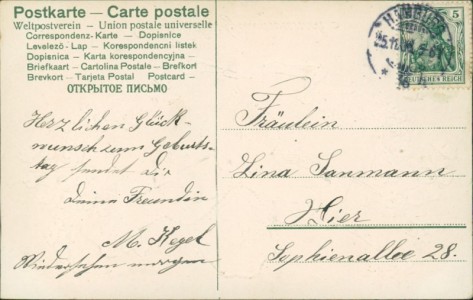 Postkarte — Carte postale
Weltpostverein — Union postale universelle
Correspondenz-Karte — Dopisnice
Levelező-Lap — Korespondencni listek
Dopisnica — Karta korespondencyjna —
Briefkaart — Cartolina Postale — Brefkort
Brevkort — Tarjeta Postal    Postcard —
ОТКРЫТОЕ ПИСЬМО
Herzlichen Glück-
wunsch zum Geburts-
tag sendet Dir
Deine Freundin
M. Kegel
Wiedersehen morgen
HAMBURG
5
DEUTSCHES REICH
Fräulein
Lina Sanmann
Hier
Sophienallee 28.